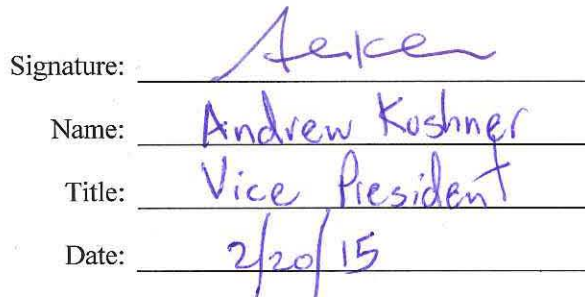 Signature:
Name: Andrew Koshner
Title: Vice President
Date: 2/20/15